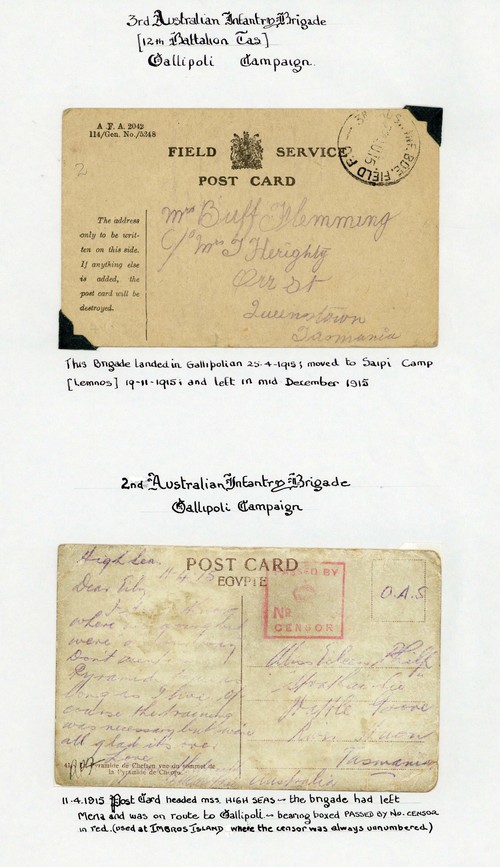 3rd Australian Infantry Brigade
[12th Battalion Tas]
Gallipoli Campaign.
A. F. A. 2042
114/Gen. No./5248
FIELD SERVICE
POST CARD
2
FIELD P.O.
The address
only to be writ-
ten on this side.
If anything else
is added, the
post card will be
destroyed.
Mrs Buff Flemming
C/o Mrs J Herighty
Orr St
Queenstown
Tasmania
This Brigade landed in Gallipoli on 25-4-1915; moved to Saipi Camp
[Lemnos] 19-11-1915; and left in mid December 1915
2nd Australian Infantry Brigade
Gallipoli Campaign
POST CARD
EGYPTE
High Sea
11 4 15
Dear
where
were
Dont
Pyramids
long as I live of
course the training
was necessary but we're
all glad its over
Love
PASSED BY
No
CENSOR
O.A.S.
Miss Eileen Philp
Myrtle Grove
Tasmania
Australia
Pyramide de Chefren vue du sommet de
la Pyramide de Cheops.
11.4.1915 Post Card headed mss. HIGH SEAS - the brigade had left
Mena and was on route to Gallipoli - bearing boxed PASSED BY No. CENSOR
in red. (used at IMBROS ISLAND where the censor was always unnumbered.)